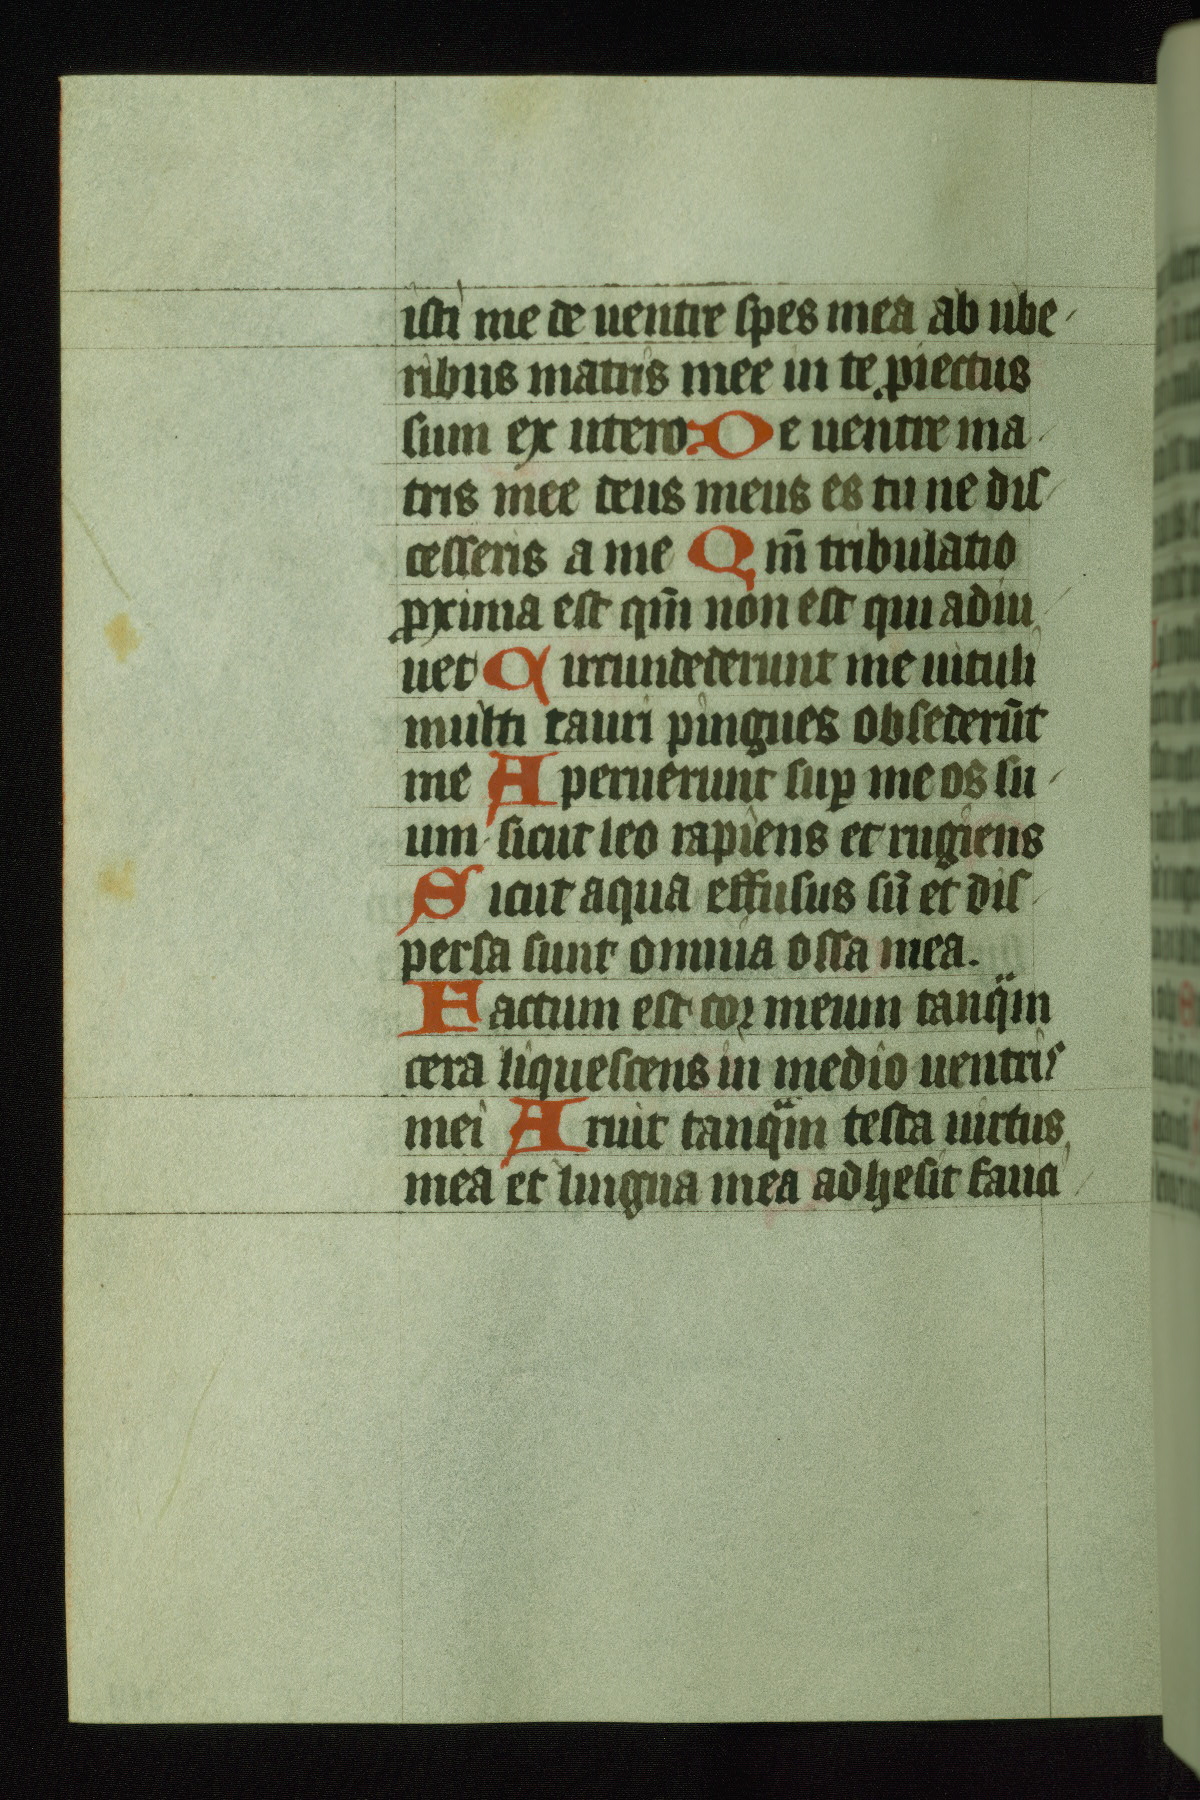 isti me de uentre spes mea ab ube
ribus matris mee in te ꝓiectus
sum ex utero De uentre ma
tris mee deus meus es tu ne dis
cesseris a me Qm̄ tribulatio
ꝓxima est qm̄ non est qui adiu
uet Circundederunt me uituli
multi tauri pingues obsederūt
me Aperuerunt suꝑ me os su
um sicut leo rapiens et rugiens
Sicut aqua effusus sū et dis
persa sunt omnia ossa mea.
Factum est cor meum tanqᷓm
cera liquescens in medio uentris
mei Aruit tanqᷓm testa uirtus
mea et lingua mea adhesit fauci